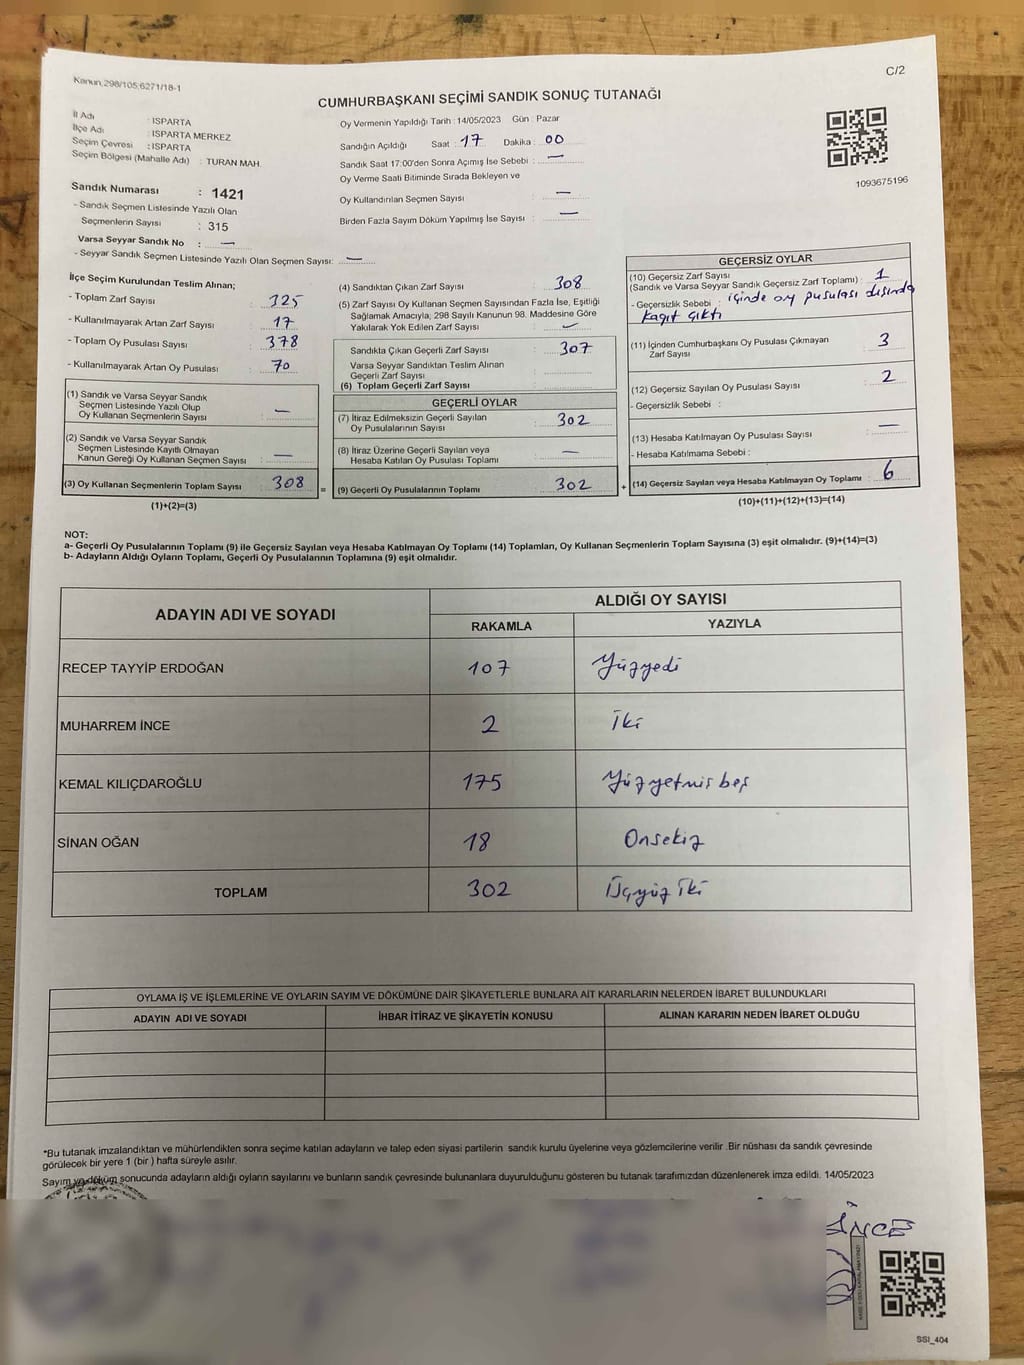 Kanun.298/105;6271/18-1
C/2
CUMHURBAŞKANI SEÇİMİ SANDIK SONUÇ TUTANAĞI
İl Adı : ISPARTA
İlçe Adı : ISPARTA MERKEZ
Seçim Çevresi : ISPARTA
Seçim Bölgesi (Mahalle Adı) : TURAN MAH.
Sandık Numarası : 1421
- Sandık Seçmen Listesinde Yazılı Olan
Seçmenlerin Sayısı : 315
Varsa Seyyar Sandık No : —
- Seyyar Sandık Seçmen Listesinde Yazılı Olan Seçmen Sayısı: —
Oy Vermenin Yapıldığı Tarih : 14/05/2023 Gün : Pazar
Sandığın Açıldığı Saat : 17 Dakika : 00
Sandık Saat 17:00'den Sonra Açımış İse Sebebi : —
Oy Verme Saati Bitiminde Sırada Bekleyen ve
Oy Kullandırılan Seçmen Sayısı : —
Birden Fazla Sayım Döküm Yapılmış İse Sayısı : —
1093675196
İlçe Seçim Kurulundan Teslim Alınan;
- Toplam Zarf Sayısı : 325
- Kullanılmayarak Artan Zarf Sayısı : 17
- Toplam Oy Pusulası Sayısı : 378
- Kullanılmayarak Artan Oy Pusulası : 70
(1) Sandık ve Varsa Seyyar Sandık
Seçmen Listesinde Yazılı Olup
Oy Kullanan Seçmenlerin Sayısı : —
(2) Sandık ve Varsa Seyyar Sandık
Seçmen Listesinde Kayıtlı Olmayan
Kanun Gereği Oy Kullanan Seçmen Sayısı : —
(3) Oy Kullanan Seçmenlerin Toplam Sayısı : 308
(1)+(2)=(3)
(4) Sandıktan Çıkan Zarf Sayısı : 308
(5) Zarf Sayısı Oy Kullanan Seçmen Sayısından Fazla İse, Eşitliği
Sağlamak Amacıyla; 298 Sayılı Kanunun 98. Maddesine Göre
Yakılarak Yok Edilen Zarf Sayısı : —
Sandıkta Çıkan Geçerli Zarf Sayısı : 307
Varsa Seyyar Sandıktan Teslim Alınan
Geçerli Zarf Sayısı :
(6) Toplam Geçerli Zarf Sayısı :
GEÇERLİ OYLAR
(7) İtiraz Edilmeksizin Geçerli Sayılan
Oy Pusulalarının Sayısı : 302
(8) İtiraz Üzerine Geçerli Sayılan veya
Hesaba Katılan Oy Pusulası Toplamı : —
= (9) Geçerli Oy Pusulalarının Toplamı : 302
GEÇERSİZ OYLAR
(10) Geçersiz Zarf Sayısı
(Sandık ve Varsa Seyyar Sandık Geçersiz Zarf Toplamı) : 1
- Geçersizlik Sebebi : içinde oy pusulası dışında
kağıt çıktı
(11) İçinden Cumhurbaşkanı Oy Pusulası Çıkmayan
Zarf Sayısı : 3
(12) Geçersiz Sayılan Oy Pusulası Sayısı : 2
- Geçersizlik Sebebi :
(13) Hesaba Katılmayan Oy Pusulası Sayısı : —
- Hesaba Katılmama Sebebi :
+ (14) Geçersiz Sayılan veya Hesaba Katılmayan Oy Toplamı : 6
(10)+(11)+(12)+(13)=(14)
NOT:
a- Geçerli Oy Pusulalarının Toplamı (9) ile Geçersiz Sayılan veya Hesaba Katılmayan Oy Toplamı (14) Toplamları, Oy Kullanan Seçmenlerin Toplam Sayısına (3) eşit olmalıdır. (9)+(14)=(3)
b- Adayların Aldığı Oyların Toplamı, Geçerli Oy Pusulalarının Toplamına (9) eşit olmalıdır.
ADAYIN ADI VE SOYADI
ALDIĞI OY SAYISI
RAKAMLA YAZIYLA
RECEP TAYYİP ERDOĞAN 107 Yüzyedi
MUHARREM İNCE 2 İki
KEMAL KILIÇDAROĞLU 175 Yüzyetmişbeş
SİNAN OĞAN 18 Onsekiz
TOPLAM 302 Üçyüz iki
OYLAMA İŞ VE İŞLEMLERİNE VE OYLARIN SAYIM VE DÖKÜMÜNE DAİR ŞİKAYETLERLE BUNLARA AİT KARARLARIN NELERDEN İBARET BULUNDUKLARI
ADAYIN ADI VE SOYADI İHBAR İTİRAZ VE ŞİKAYETİN KONUSU ALINAN KARARIN NEDEN İBARET OLDUĞU
*Bu tutanak imzalandıktan ve mühürlendikten sonra seçime katılan adayların ve talep eden siyasi partilerin sandık kurulu üyelerine veya gözlemcilerine verilir .Bir nüshası da sandık çevresinde
görülecek bir yere 1 (bir ) hafta süreyle asılır.
Sayım ve döküm sonucunda adayların aldığı oyların sayılarını ve bunların sandık çevresinde bulunanlara duyurulduğunu gösteren bu tutanak tarafımızdan düzenlenerek imza edildi. 14/05/2023
İNCE
SSI_404